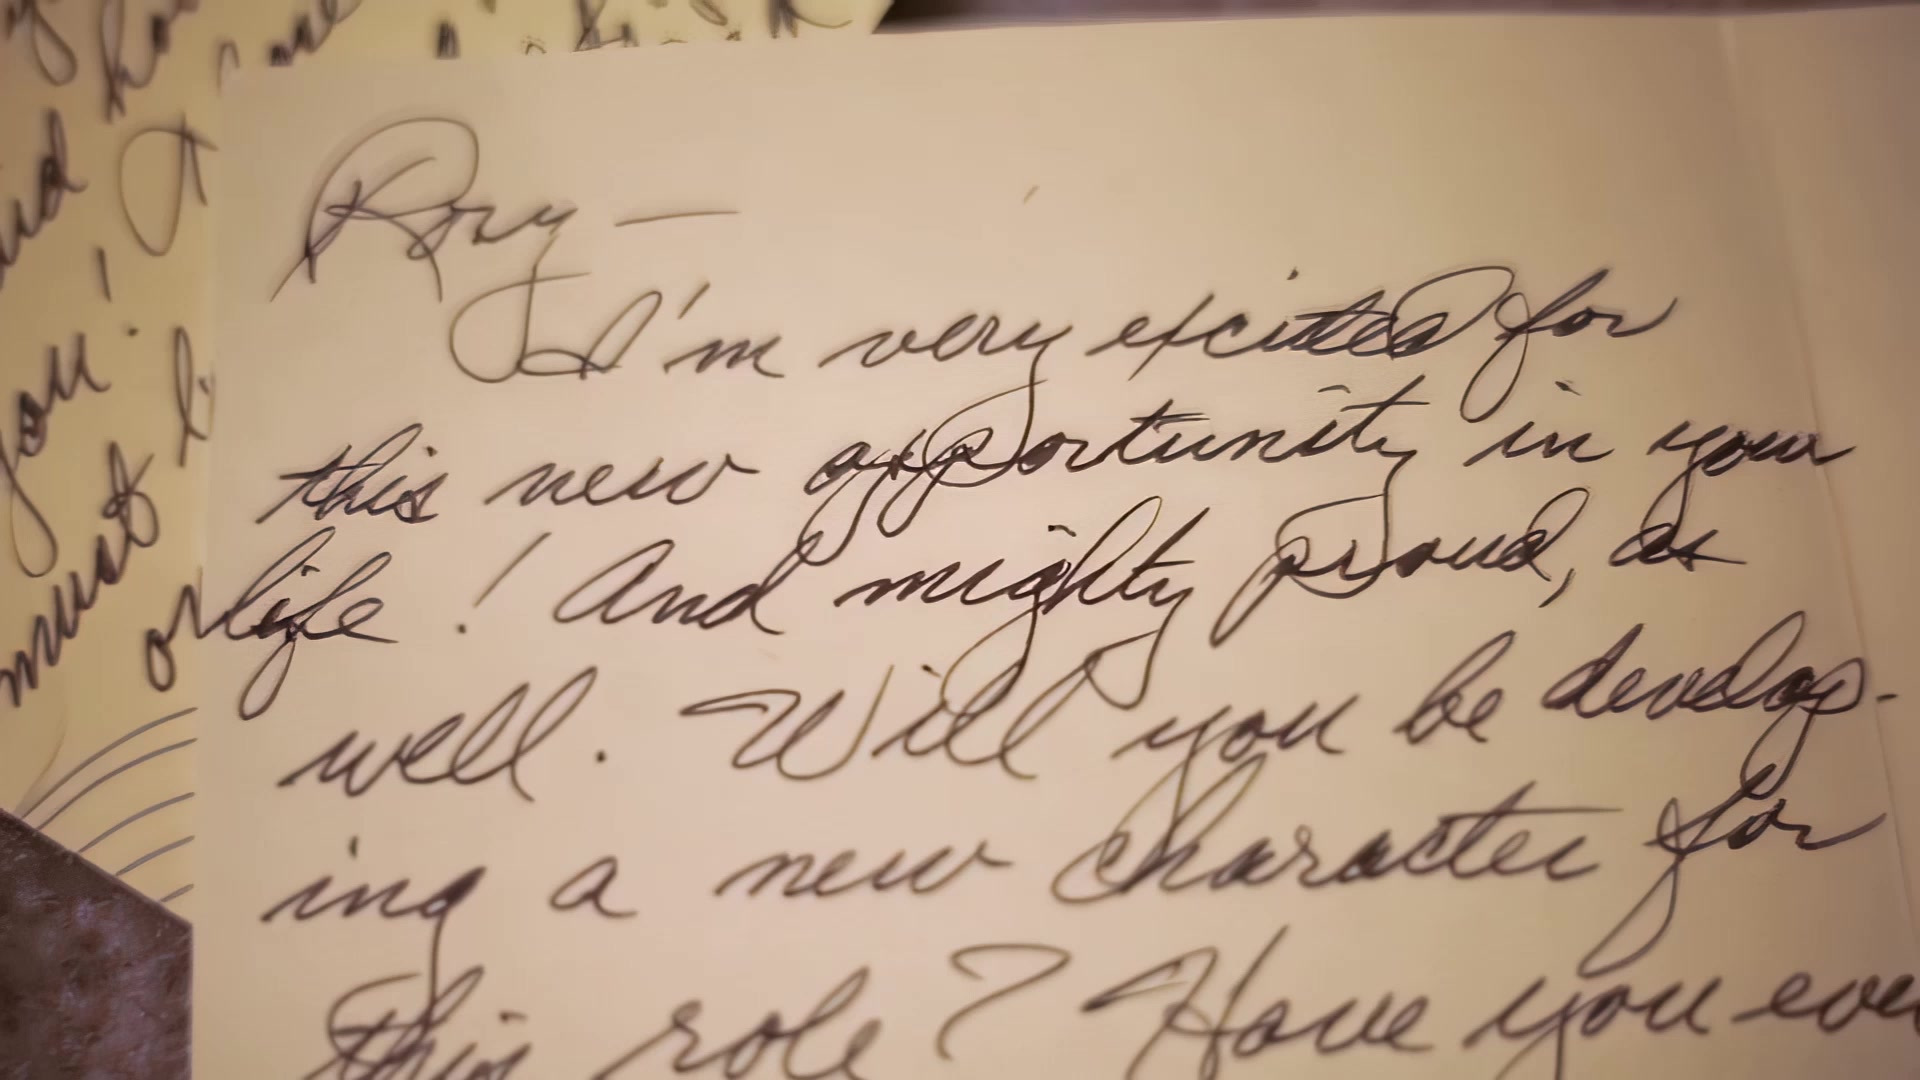 Rory —
I'm very excited for
this new opportunity in your
life! And mighty proud, as
well. Will you be develop-
ing a new character for
this role? Have you ever
you!
must
or